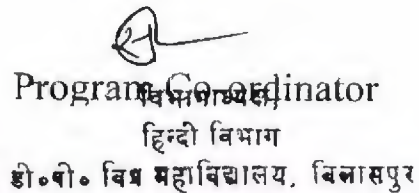 Program Co-ordinator
विभागाध्यक्ष
हिन्दी विभाग
डी०पी० विप्र महाविद्यालय, बिलासपुर